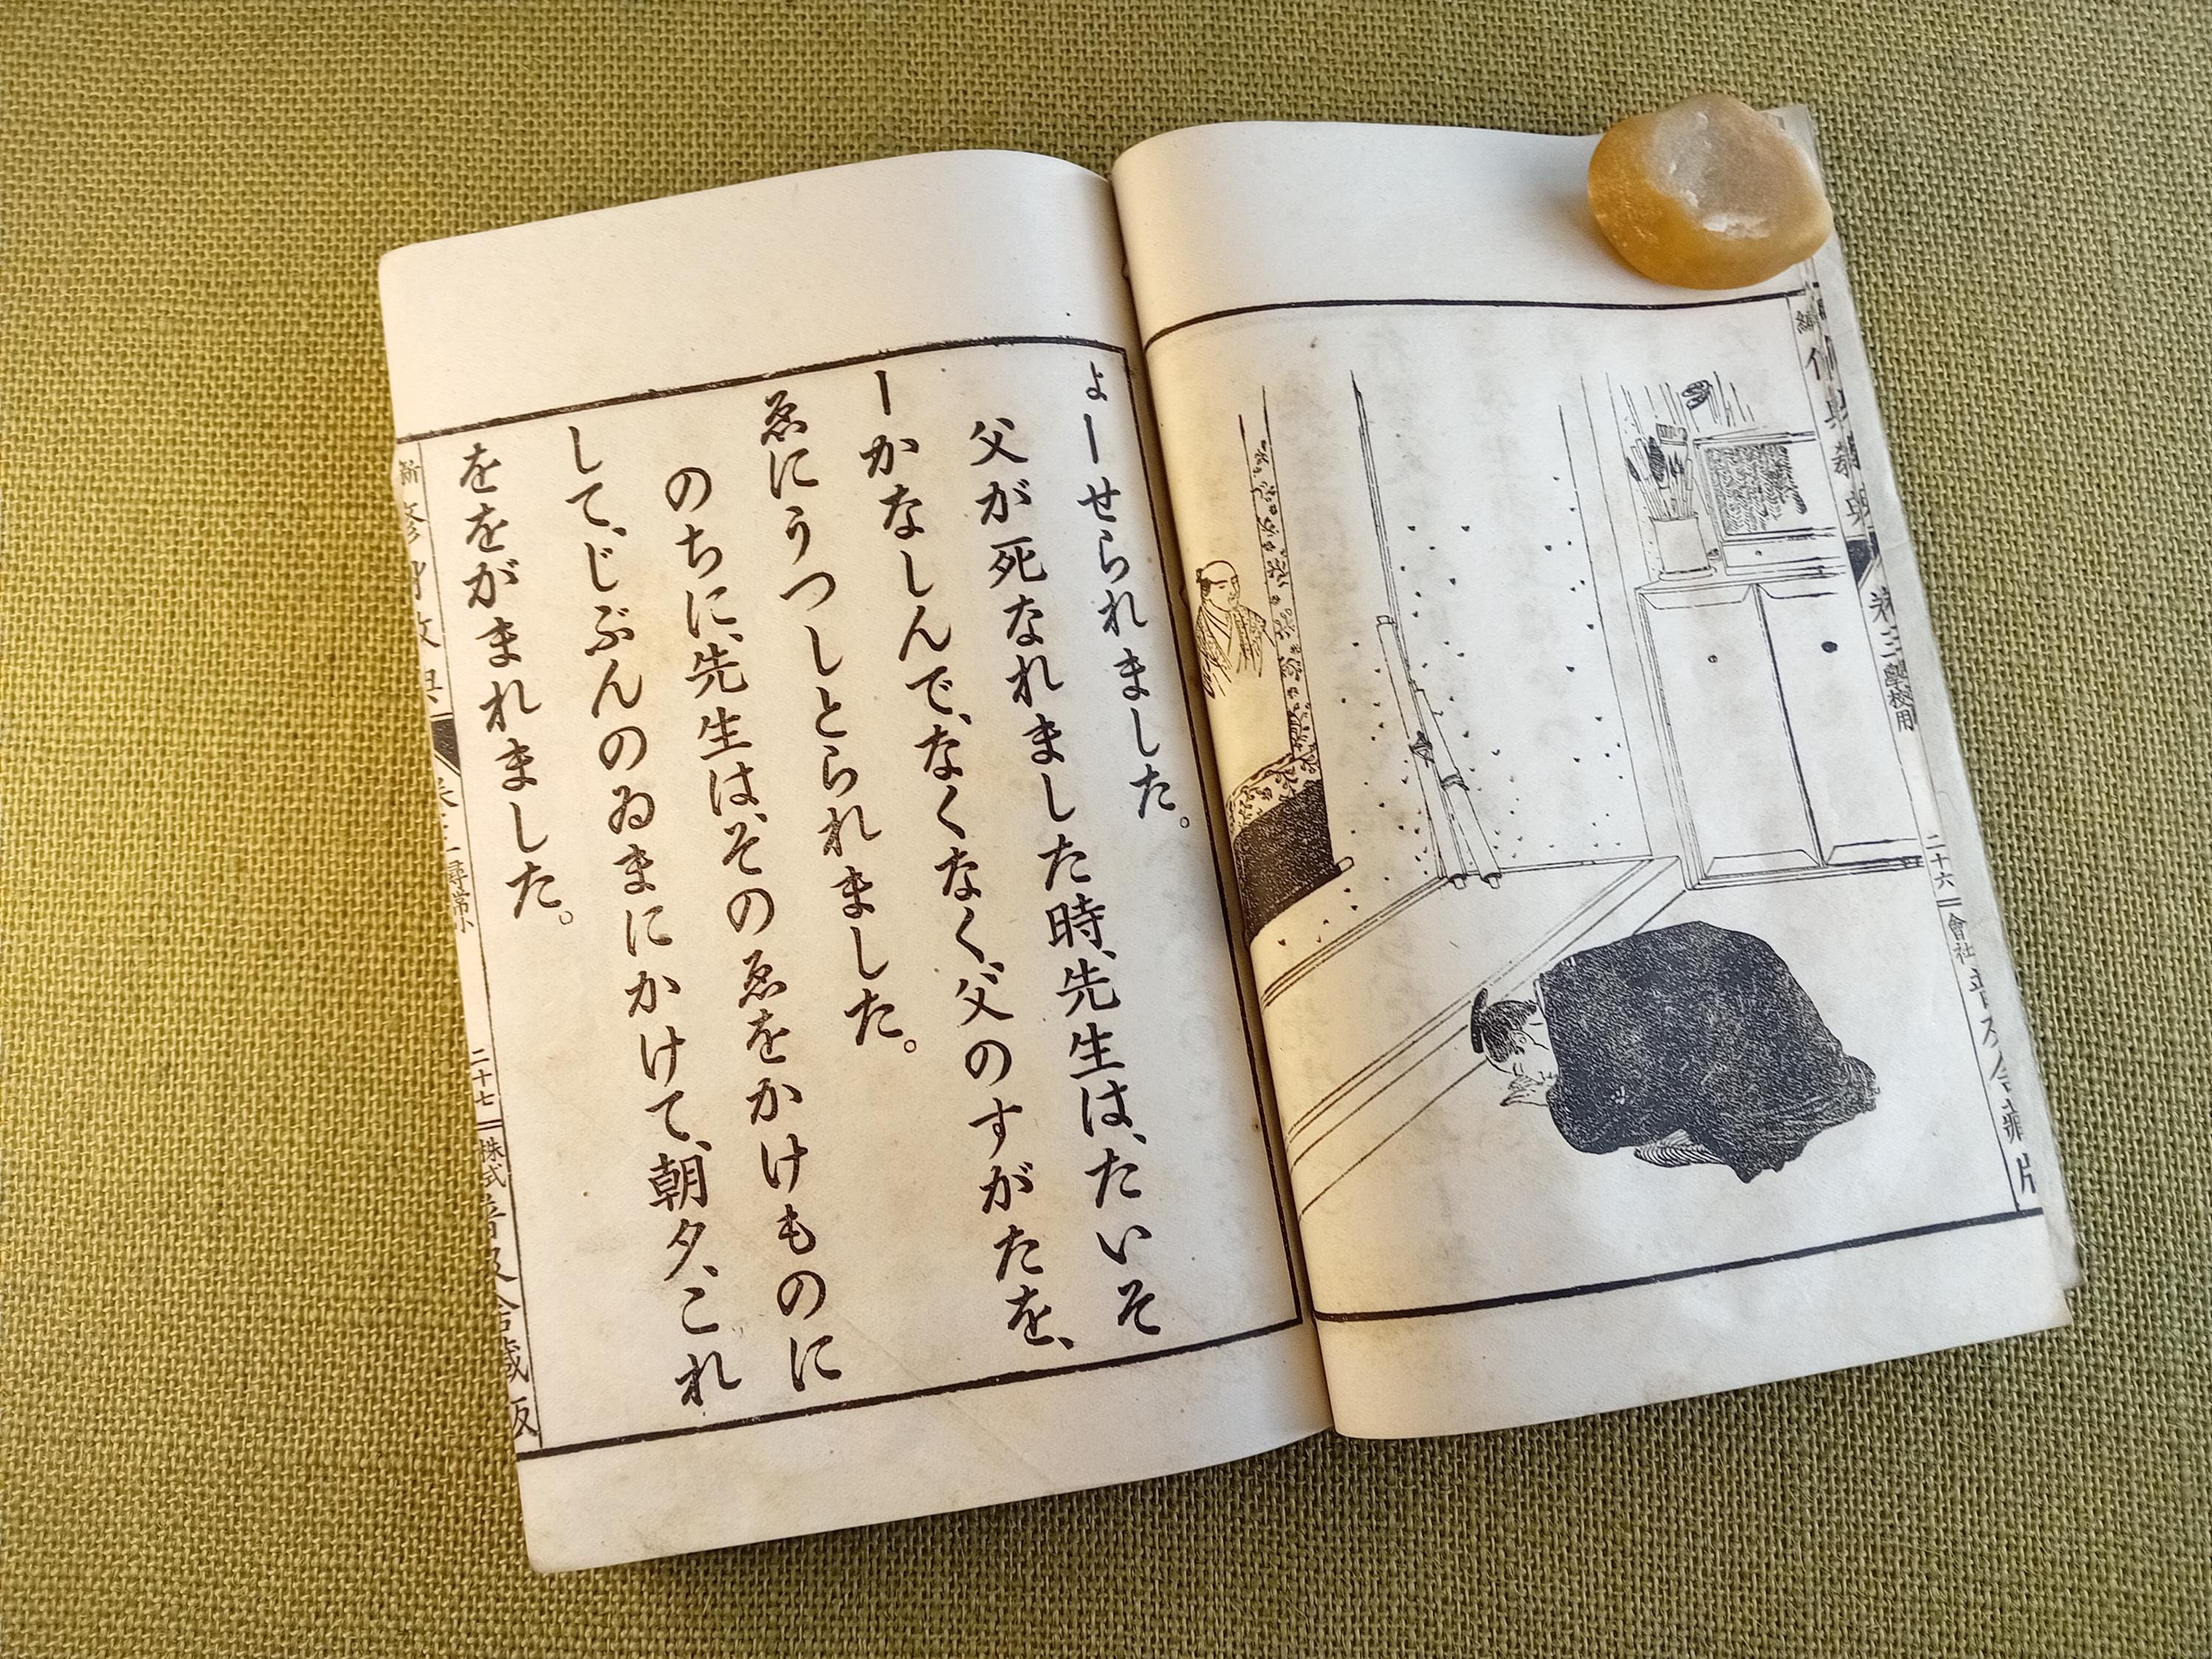 二十六
會社
學校用
よーせられました。
父が死なれました時、先生は、たいそ
ーかなしんで、なくなく、父のすがたを、
ゑにうつしとられました。
のちに、先生は、そのゑをかけものに
して、じぶんのゐまにかけて、朝夕、これ
ををがまれました。
尋常小
二十七
株式